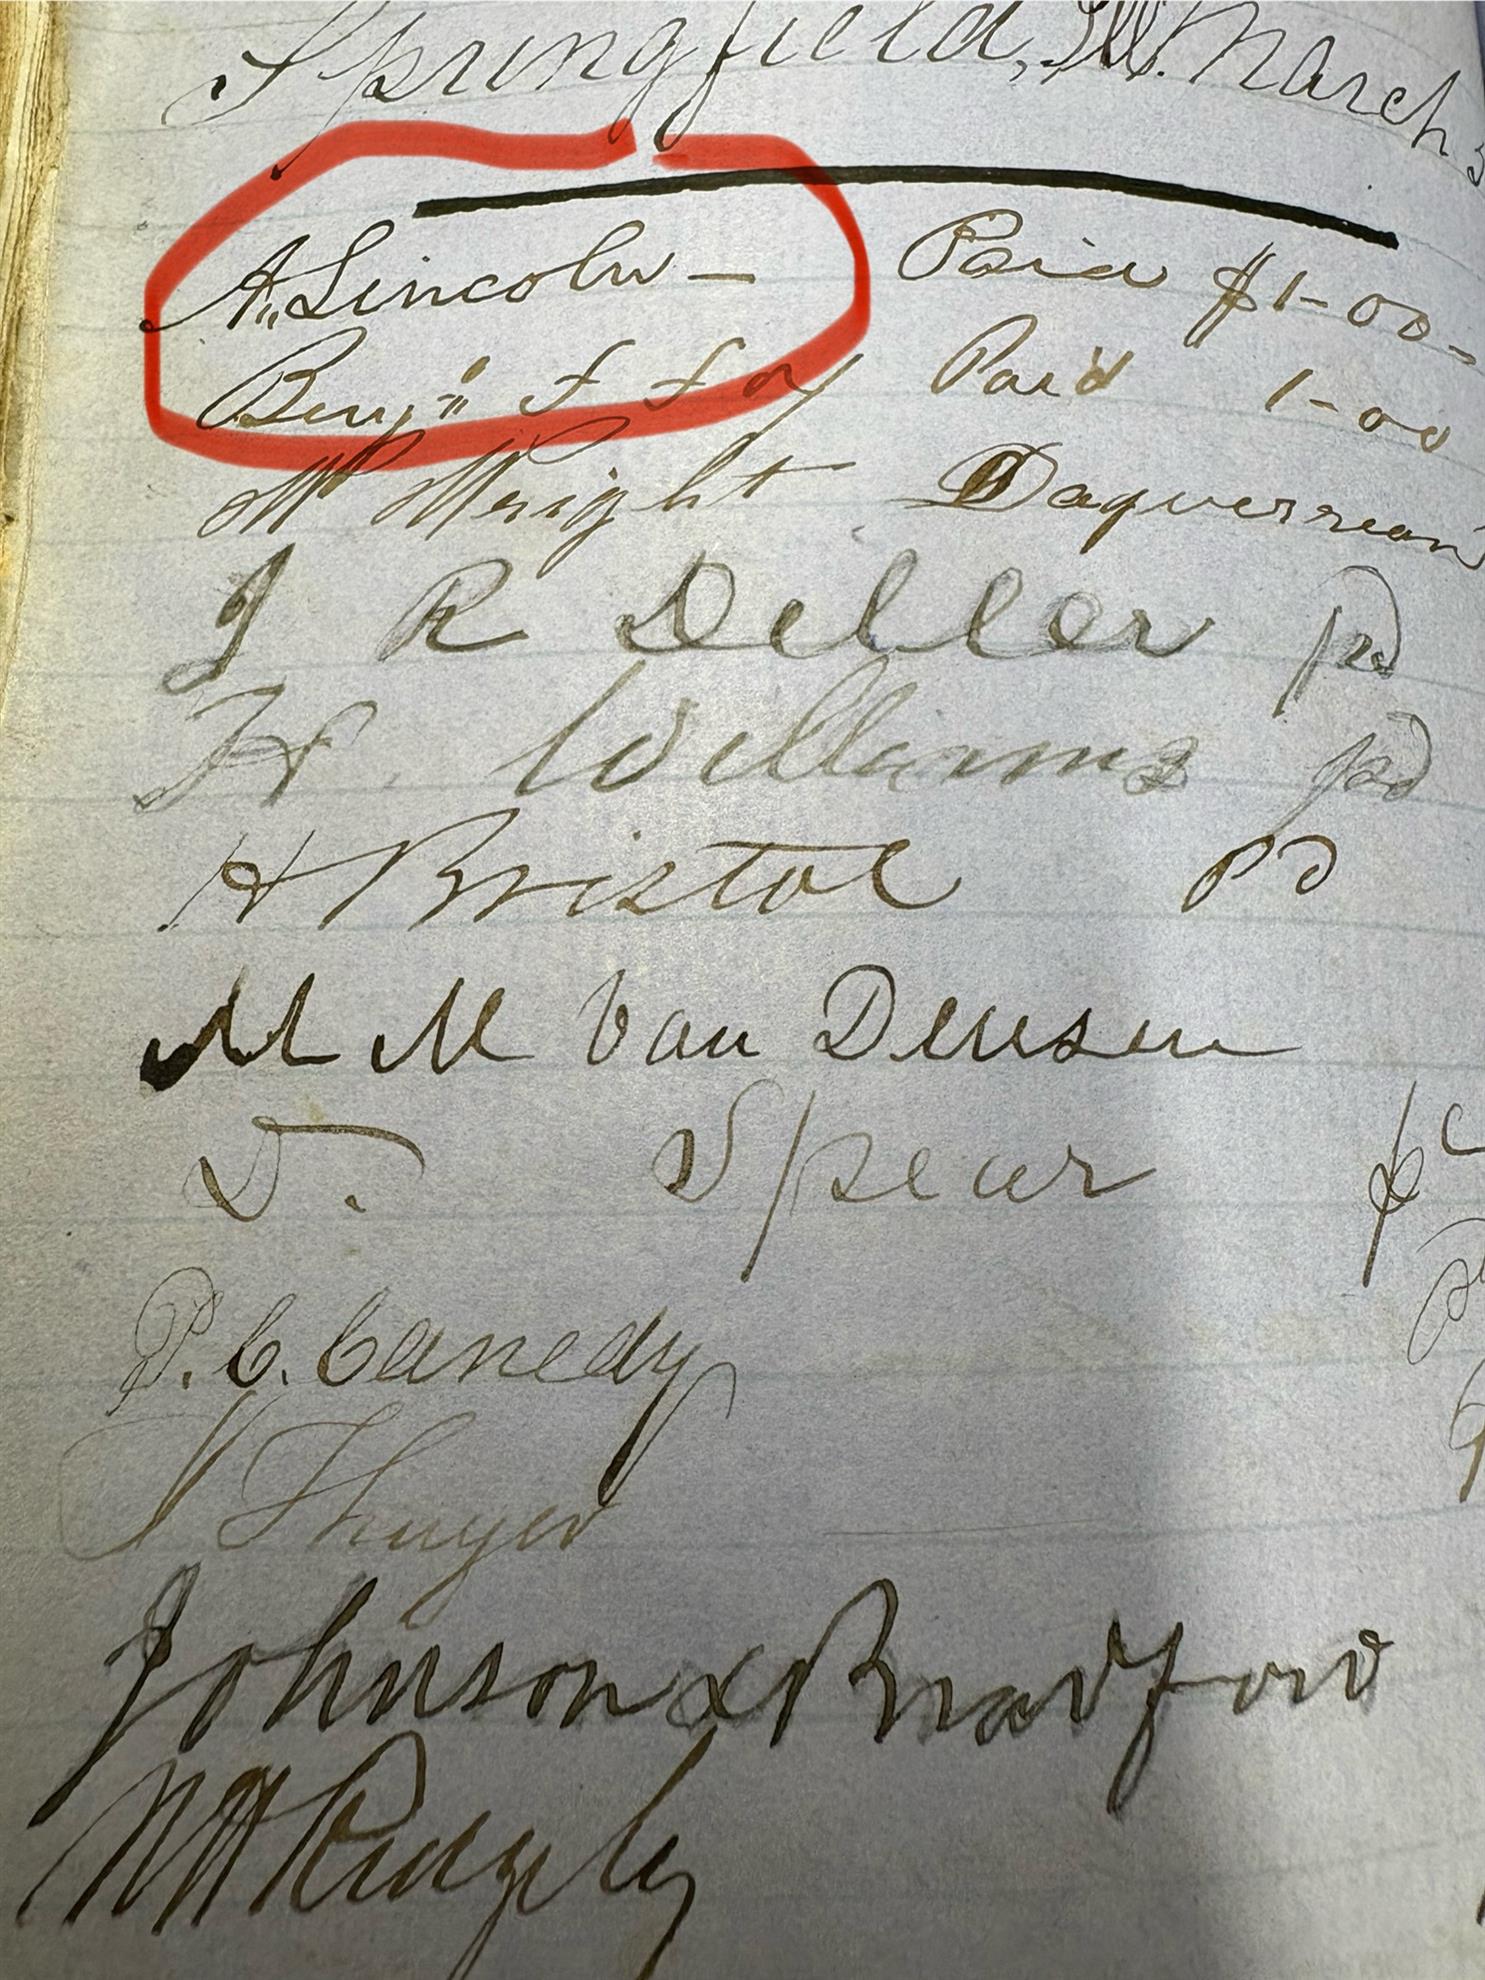 Springfield, Ill. March 3
A. Lincoln — Paid $1-00-
Benj. F. Fox Paid 1-00
Wright
J R Diller pd
H. Williams pd
H Bristol Pd
M M Van Deusen
D. Spear
P. C. Canedy
Thayer
Johnson & Bradford
N H Ridgely